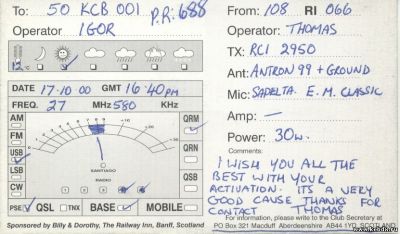 To: 50 KCB 001 P.R: 688
Operator IGOR
12°c
DATE 17.10 00 GMT 16:40pm
FREQ. 27 MHz 580 KHz
AM
FM
USB
LSB
CW
QRM
QRN
SANTIAGO
RADIO
PSE QSL TNX BASE MOBILE
Sponsored by Billy & Dorothy, The Railway Inn, Banff, Scotland
From: 108 RI 066
Operator THOMAS
TX: RCI 2950
Ant: ANTRON 99 + GROUND
Mic: SADELTA. E.M. CLASSIC
Amp: —
Power: 30w.
Comments:
I WISH YOU ALL THE
BEST WITH YOUR
ACTIVATION. ITS A VERY
GOOD CAUSE THANKS FOR
CONTACT THOMAS
For information, please write to the Club Secretary at
PO BOX 321 Macduff Aberdeenshire AB44 1YD, SCOTLAND